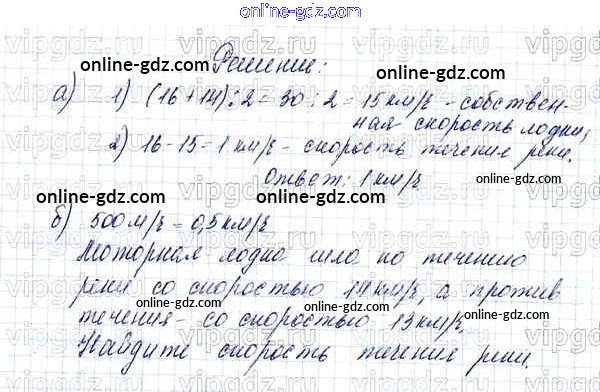 online-gdz.com
Решение:
а) 1) (16+14):2=30:2=15 км/ч - собствен-
online-gdz.com
ная скорость лодки;
2) 16-15=1 км/ч - скорость течение реки.
online-gdz.com
Ответ: 1 км/ч
online-gdz.com
online-gdz.com
б) 500 м/ч = 0,5 км/ч
Моторная лодка шла по течению
online-gdz.com
реки со скоростью 14 км/ч, а против
online-gdz.com
течения - со скоростью 13 км/ч.
online-gdz.com
Найдите скорость течение реки.
online-gdz.com